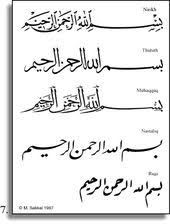 Naskh
بسم الله الرحمن الرحيم
Thuluth
بسم الله الرحمن الرحيم
Muhaqqiq
بسم الله الرحمن الرحيم
Nastaliq
بسم الله الرحمن الرحيم
Ruqa
بسم الله الرحمن الرحيم
7.
© M. Sakkal 1997